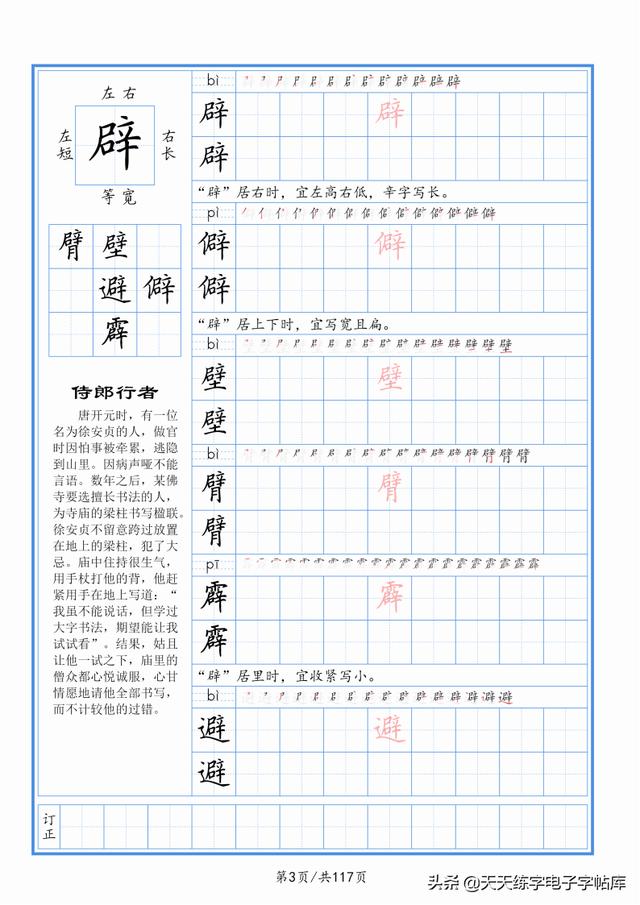 左右
左短
辟
右长
等宽
臂 壁
避 僻
霹
侍郎行者
唐开元时，有一位
名为徐安贞的人，做官
时因怕事被牵累，逃隐
到山里。因病声哑不能
言语。数年之后，某佛
寺要选擅长书法的人，
为寺庙的梁柱书写楹联。
徐安贞不留意跨过放置
在地上的梁柱，犯了大
忌。庙中住持很生气，
用手杖打他的背，他赶
紧用手在地上写道：“
我虽不能说话，但学过
大字书法，期望能让我
试试看”。结果，姑且
让他一试之下，庙里的
僧众都心悦诚服，心甘
情愿地请他全部书写，
而不计较他的过错。
bì
辟 辟
辟
“辟”居右时，宜左高右低，辛字写长。
pì
僻 僻
僻
“辟”居上下时，宜写宽且扁。
bì
壁 壁
壁
bì
臂 臂
臂
pī
霹 霹
霹
“辟”居里时，宜收紧写小。
bì
避 避
避
订正
第3页/共117页
头条 @天天练字电子字帖库